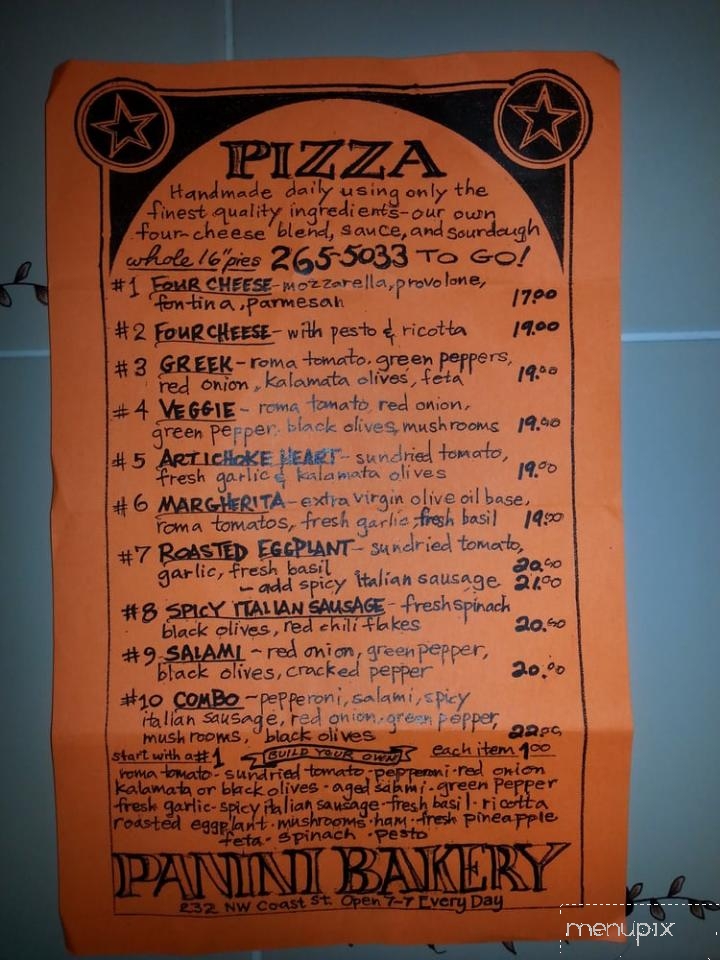 PIZZA
Handmade daily using only the
finest quality ingredients-our own
four-cheese blend, sauce, and sourdough
whole 16" pies 265-5033 TO GO!
#1 FOUR CHEESE-mozzarella, provolone,
fontina, parmesan 17.00
#2 FOUR CHEESE- with pesto & ricotta 19.00
#3 GREEK - roma tomato, green peppers,
red onion, kalamata olives, feta 19.00
#4 VEGGIE - roma tomato, red onion,
green pepper, black olives, mushrooms 19.00
#5 ARTICHOKE HEART- sundried tomato,
fresh garlic & kalamata olives 19.00
#6 MARGHERITA-extra virgin olive oil base,
roma tomatos, fresh garlic, fresh basil 19.00
#7 ROASTED EGGPLANT- sundried tomato,
garlic, fresh basil 20.00
- add spicy italian sausage 21.00
#8 SPICY ITALIAN SAUSAGE - fresh spinach
black olives, red chili flakes 20.00
#9 SALAMI - red onion, green pepper,
black olives, cracked pepper 20.00
#10 COMBO - pepperoni, salami, spicy
italian sausage, red onion, green pepper,
mushrooms, black olives 22.00
start with a #1 BUILD YOUR OWN each item 1.00
roma tomato · sundried tomato · pepperoni · red onion
kalamata or black olives · aged salami · green pepper
fresh garlic · spicy italian sausage · fresh basil · ricotta
roasted eggplant · mushrooms · ham · fresh pineapple
feta · spinach · pesto
PANINI BAKERY
232 NW Coast St. Open 7-7 Every Day
menupix